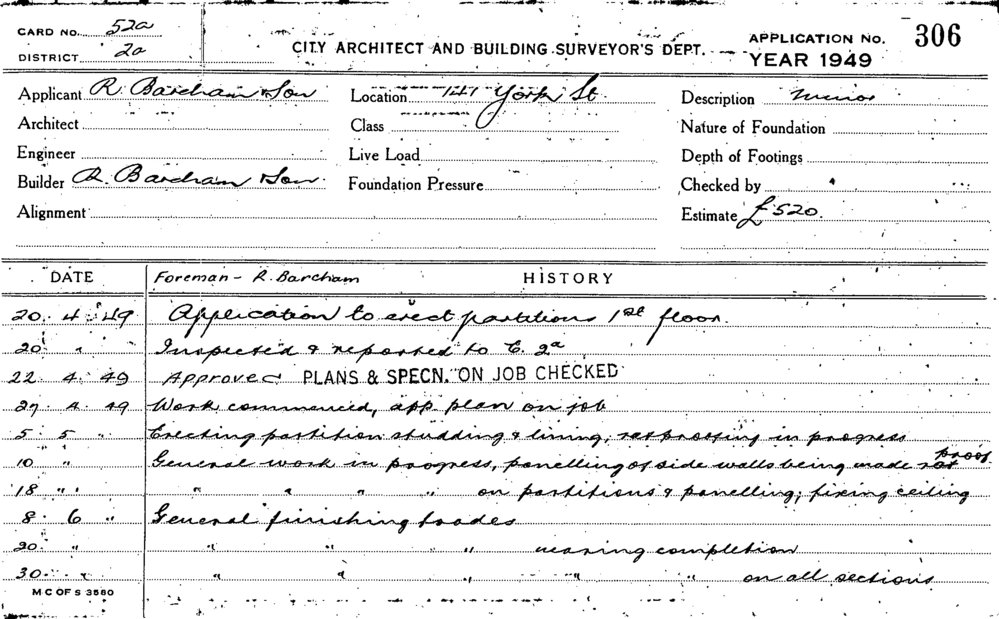 CARD NO. 52a
DISTRICT 2a
CITY ARCHITECT AND BUILDING SURVEYOR'S DEPT.
APPLICATION NO. 306
YEAR 1949
Applicant R. Barcham & Son Location 141 York St Description Minor
Architect Class Nature of Foundation
Engineer Live Load Depth of Footings
Builder R. Barcham & Son. Foundation Pressure Checked by
Alignment Estimate £520.
DATE Foreman - R. Barcham HISTORY
20. 4. 49 Application to erect partitions 1st floor.
20 " Inspected & reported to C. 2a
22 4. 49 Approved PLANS & SPECN. ON JOB CHECKED
27. 4. 49 Work commenced, app. plan on job
5. 5 " Erecting partition studding & lining; ratproofing in progress
10 " General work in progress, panelling of side walls being made rat proof
18 " " " " " " on partitions & panelling; fixing ceiling
8. 6 " General finishing trades
20. " " " " " nearing completion
30. " " " " " " on all sections
M C OF S 3580